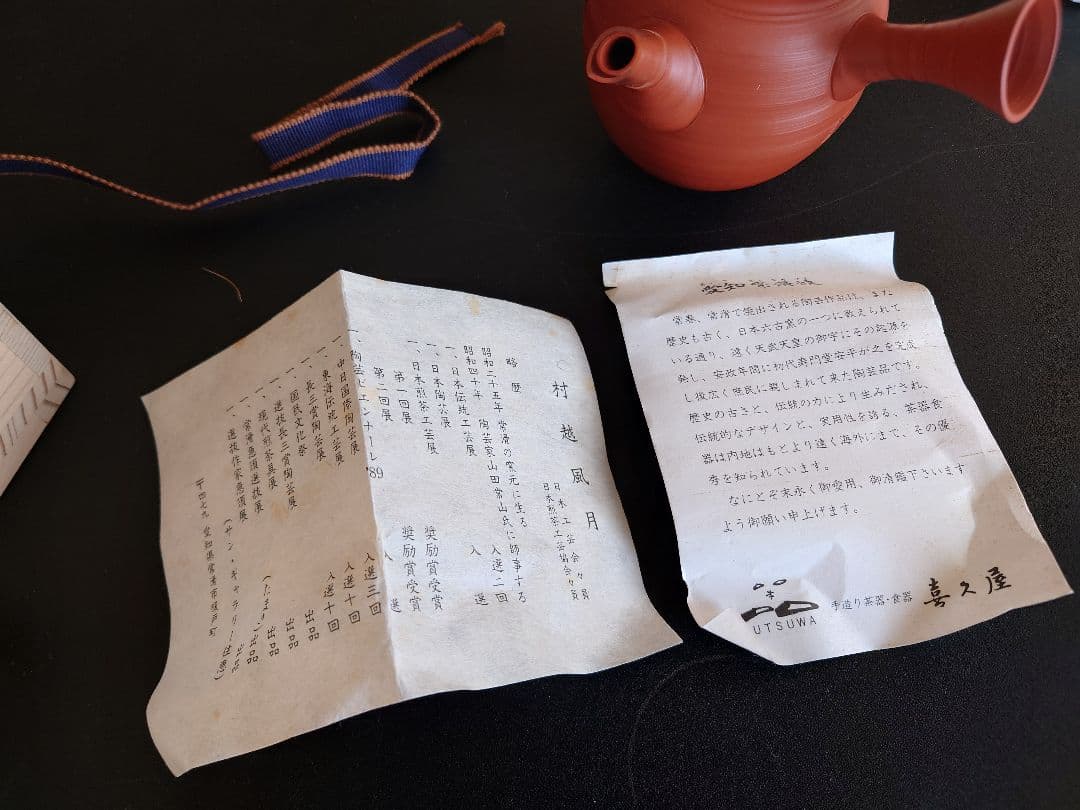 村越風月
日本工芸会々員
日本煎茶工芸協会々員
略歴
昭和二十五年 常滑の窯元に生る
昭和四十年 陶芸家山田常山氏に師事する
一、日本伝統工芸展 入選二回
一、日本陶芸展 入選
一、日本煎茶工芸展
第一回展 奨励賞受賞
第二回展 奨励賞受賞
一、陶芸ビエンナール'89 入選
一、中日国際陶芸展 入選三回
一、東海伝統工芸展 入選十回
一、長三賞陶芸展 入選十回
一、国民文化祭 出品
一、選抜長三賞陶芸展 出品
一、現代煎茶具展 出品
一、常滑急須選抜展 出品
一、選抜作家急須展 (サン・ギャラリー住恵) 出品
〒四七九 愛知県常滑市
常滑焼
常滑で産出される陶芸作品は、また
歴史も古く、日本六古窯の一つに数えられて
いる通り、遠く天武天皇の御宇にその起源を
発し、安政年間に初代寿門堂安平が之を完成
し後広く庶民に親しまれて来た陶芸品です。
歴史の古さと、伝統の力により生みだされ、
伝統的なデザインと、実用性を誇る、茶器食
器は内地はもとより遠く海外にまで、その優
秀を知られています。
なにとぞ末永く御愛用、御清鑑下さいます
よう御願い申上げます。
UTSUWA
手造り茶器・食器 喜久屋